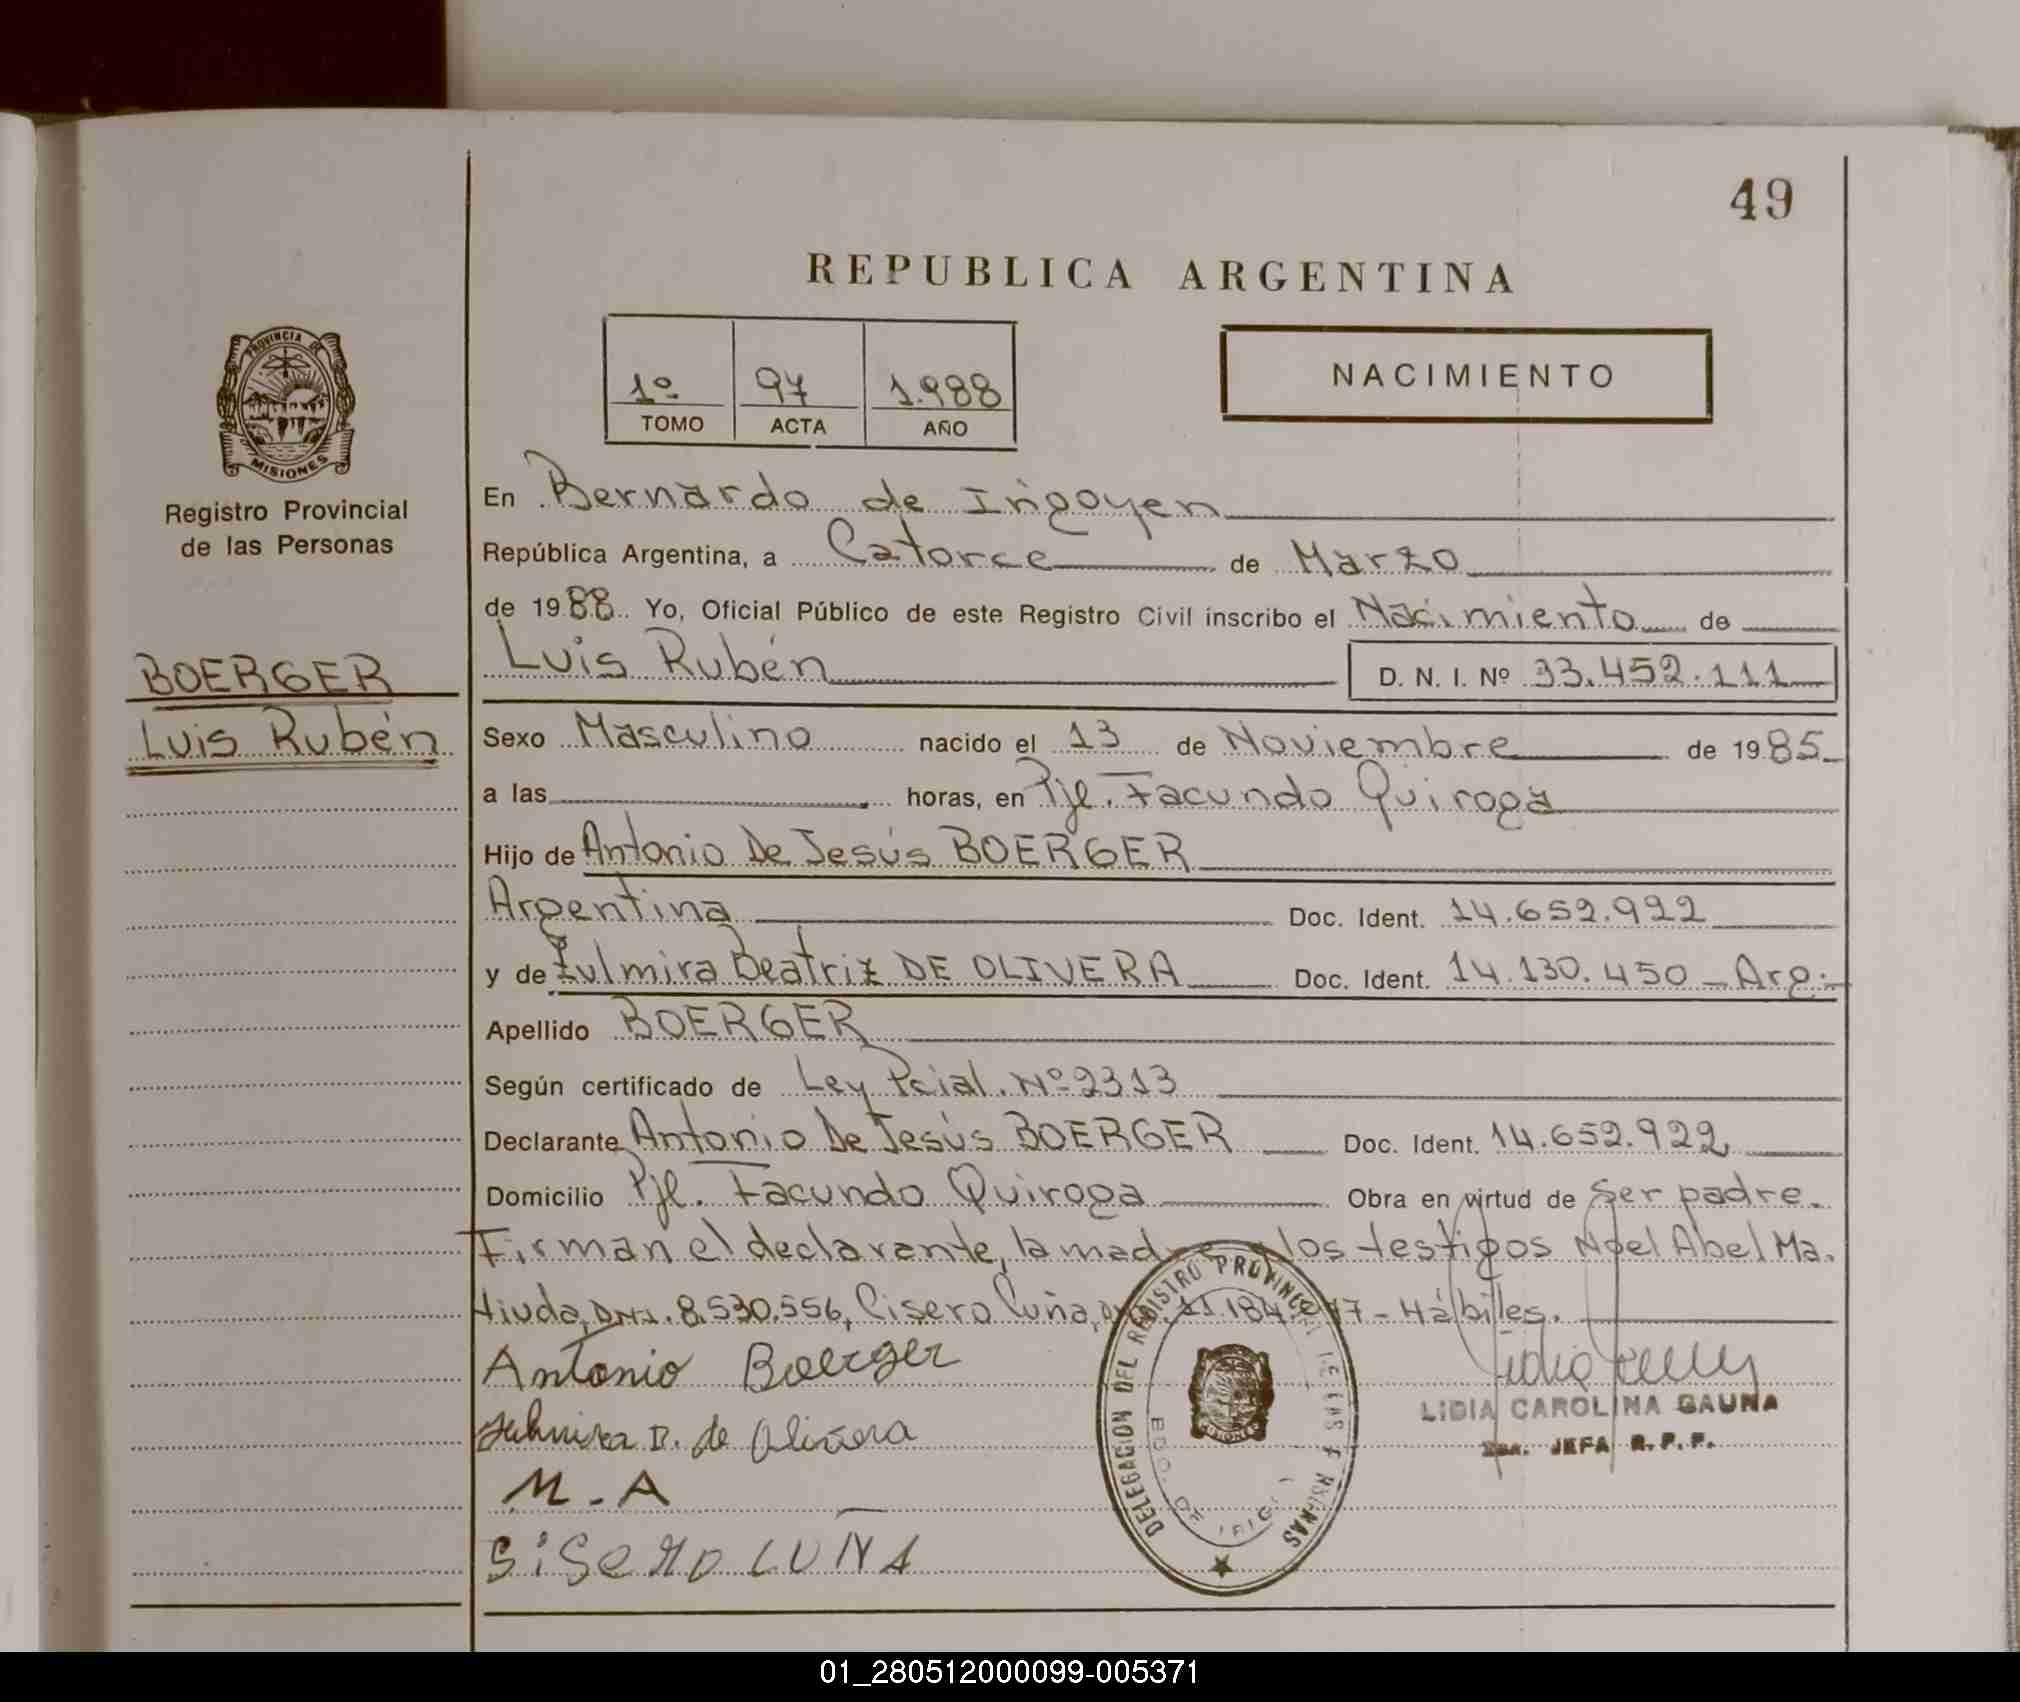 49
REPUBLICA ARGENTINA
1º 97 1.988
TOMO ACTA AÑO
NACIMIENTO
PROVINCIA DE
MISIONES
Registro Provincial
de las Personas
BOERGER
Luis Rubén
En Bernardo de Irigoyen
República Argentina, a Catorce de Marzo
de 1988 Yo, Oficial Público de este Registro Civil inscribo el Nacimiento de
Luis Rubén D. N. I. Nº 33.452.111
Sexo Masculino nacido el 13 de Noviembre de 1985
a las horas, en Pje. Facundo Quiroga
Hijo de Antonio De Jesús BOERGER
Argentina Doc. Ident. 14.652.922
y de Zulmira Beatriz DE OLIVERA Doc. Ident. 14.130.450 - Arg.-
Apellido BOERGER
Según certificado de Ley Pcial. Nº 2313
Declarante Antonio De Jesús BOERGER Doc. Ident. 14.652.922
Domicilio Pje. Facundo Quiroga Obra en virtud de ser padre.
Firman el declarante, la madre los testigos Noel Abel Ma.
D.N.I. 8.530.556, Cisero 11.184. - Hábiles.
Antonio Boerger
B. de Olivera
M.A
SiSeRO LUÑA
LIDIA CAROLINA GAUNA
JEFA R.P.P.
DELEGACION DEL REGISTRO PROVINCIAL DE LAS PERSONAS
BDO. DE IRIGOYEN
01_280512000099-005371